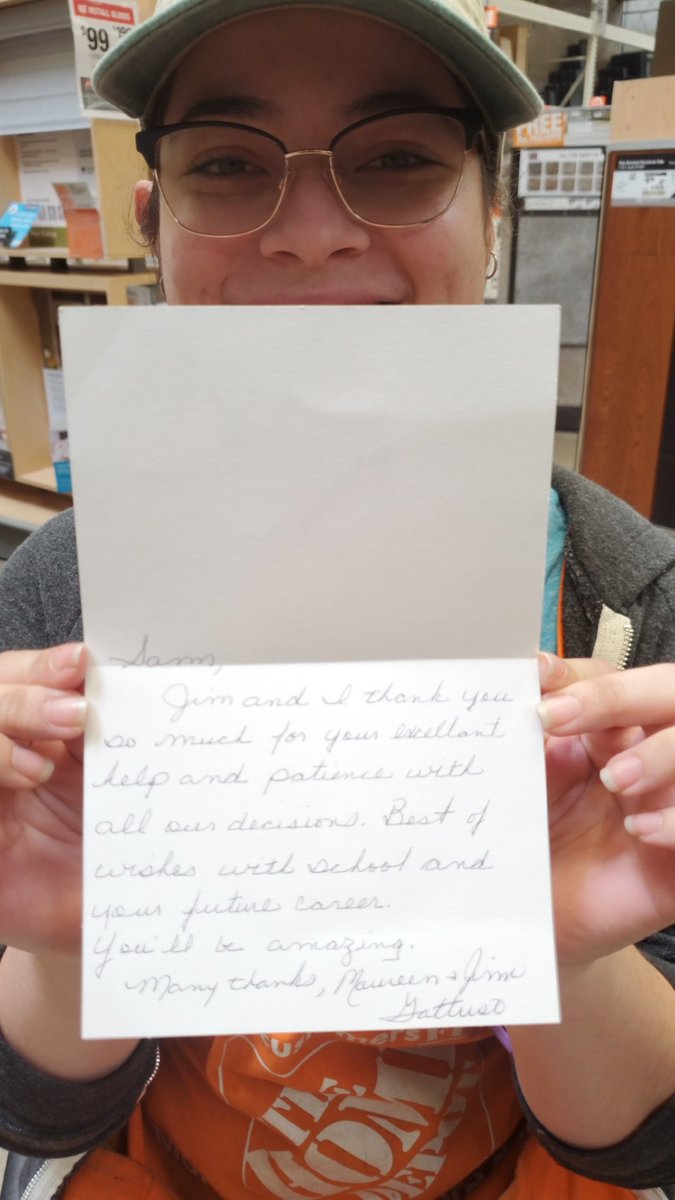 INSTALL BLINDS
$99
FREE
Sam,
Jim and I thank you
so much for your excellant
help and patience with
all our decisions. Best of
wishes with school and
your future career.
You'll be amazing.
Many thanks, Maureen & Jim
Gattuso
THE
HOME
DEPOT